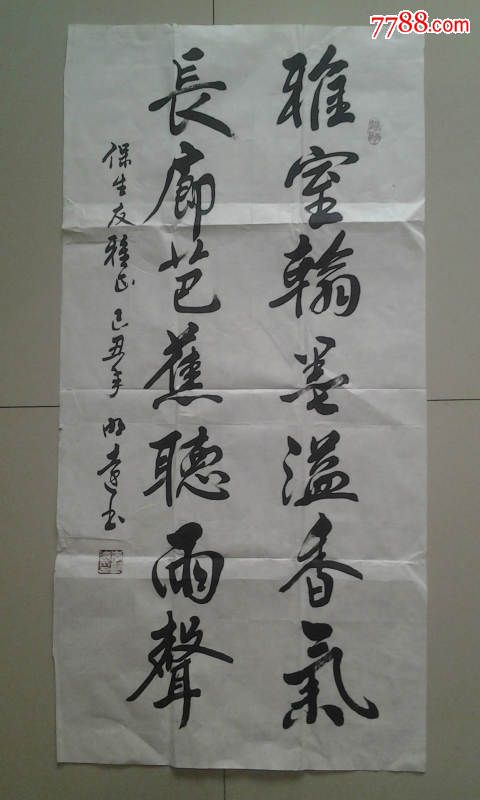 雅室翰墨溢香氣
長廊芭蕉聽雨聲
保生友雅正 己丑年 明達书
7788.com